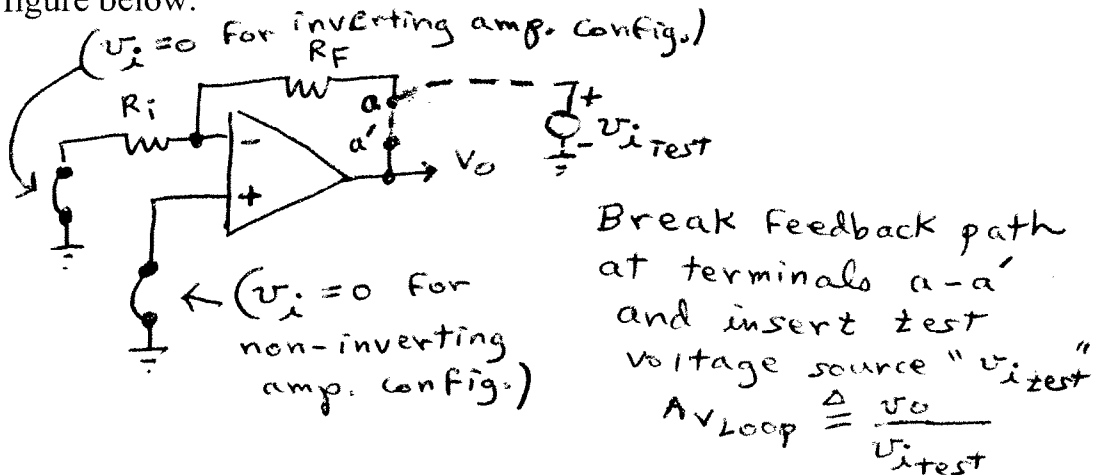 figure below.
(v_i = 0 for inverting amp. config.)
R_F
R_i
a
a'
-
+
V_o
+
-
v_i Test
(v_i = 0 for
non-inverting
amp. config.)
Break Feedback path
at terminals a-a'
and insert test
voltage source "v_i test"
A_V LOOP ≜ v_o / v_i test